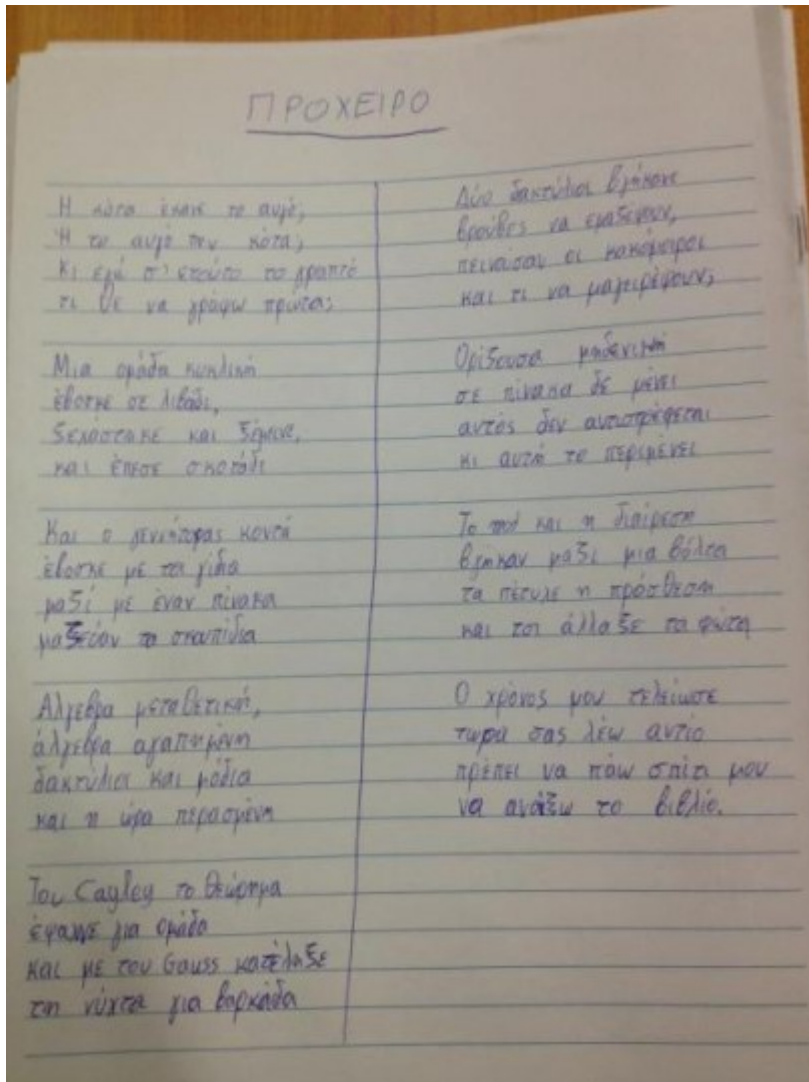 ΠΡΟΧΕΙΡΟ
Η κότα έκανε το αυγό;
Ή το αυγό την κότα;
Κι εγώ σ' ετούτο το γραπτό
τι θε να γράψω πρώτα;
Μια ομάδα κυκλική
έβοσκε σε λιβάδι,
ξεχάστηκε και ξέμεινε,
και έπεσε σκοτάδι
Και ο γεννήτορας κοντά
έβοσκε με τα γίδια
μαζί με έναν πίνακα
μαζεύαν τα σκουπίδια
Άλγεβρα μεταθετική,
άλγεβρα αγαπημένη
δακτύλιοι και μόδια
και η ώρα περασμένη
Του Cayley το θεώρημα
έψαχνε για ομάδα
και με του Gauss κατέληξε
τη νύχτα για βαρκάδα
Δύο δακτύλιοι βγήκανε
βρούβες να μαζέψουν,
πεινάσαν οι κακόμοιροι
και τι να μαγειρέψουν;
Ορίζουσα μηδενική
σε πίνακα δε μένει
αυτός δεν αντιστρέφεται
κι αυτή το περιμένει
Το και η διαίρεση
βγήκαν μαζί μια βόλτα
τα πέτυχε η πρόσθεση
και τση άλλαξε τα φώτα
Ο χρόνος μου τελείωσε
τώρα σας λέω αντίο
πρέπει να πάω σπίτι μου
να ανοίξω το βιβλίο.